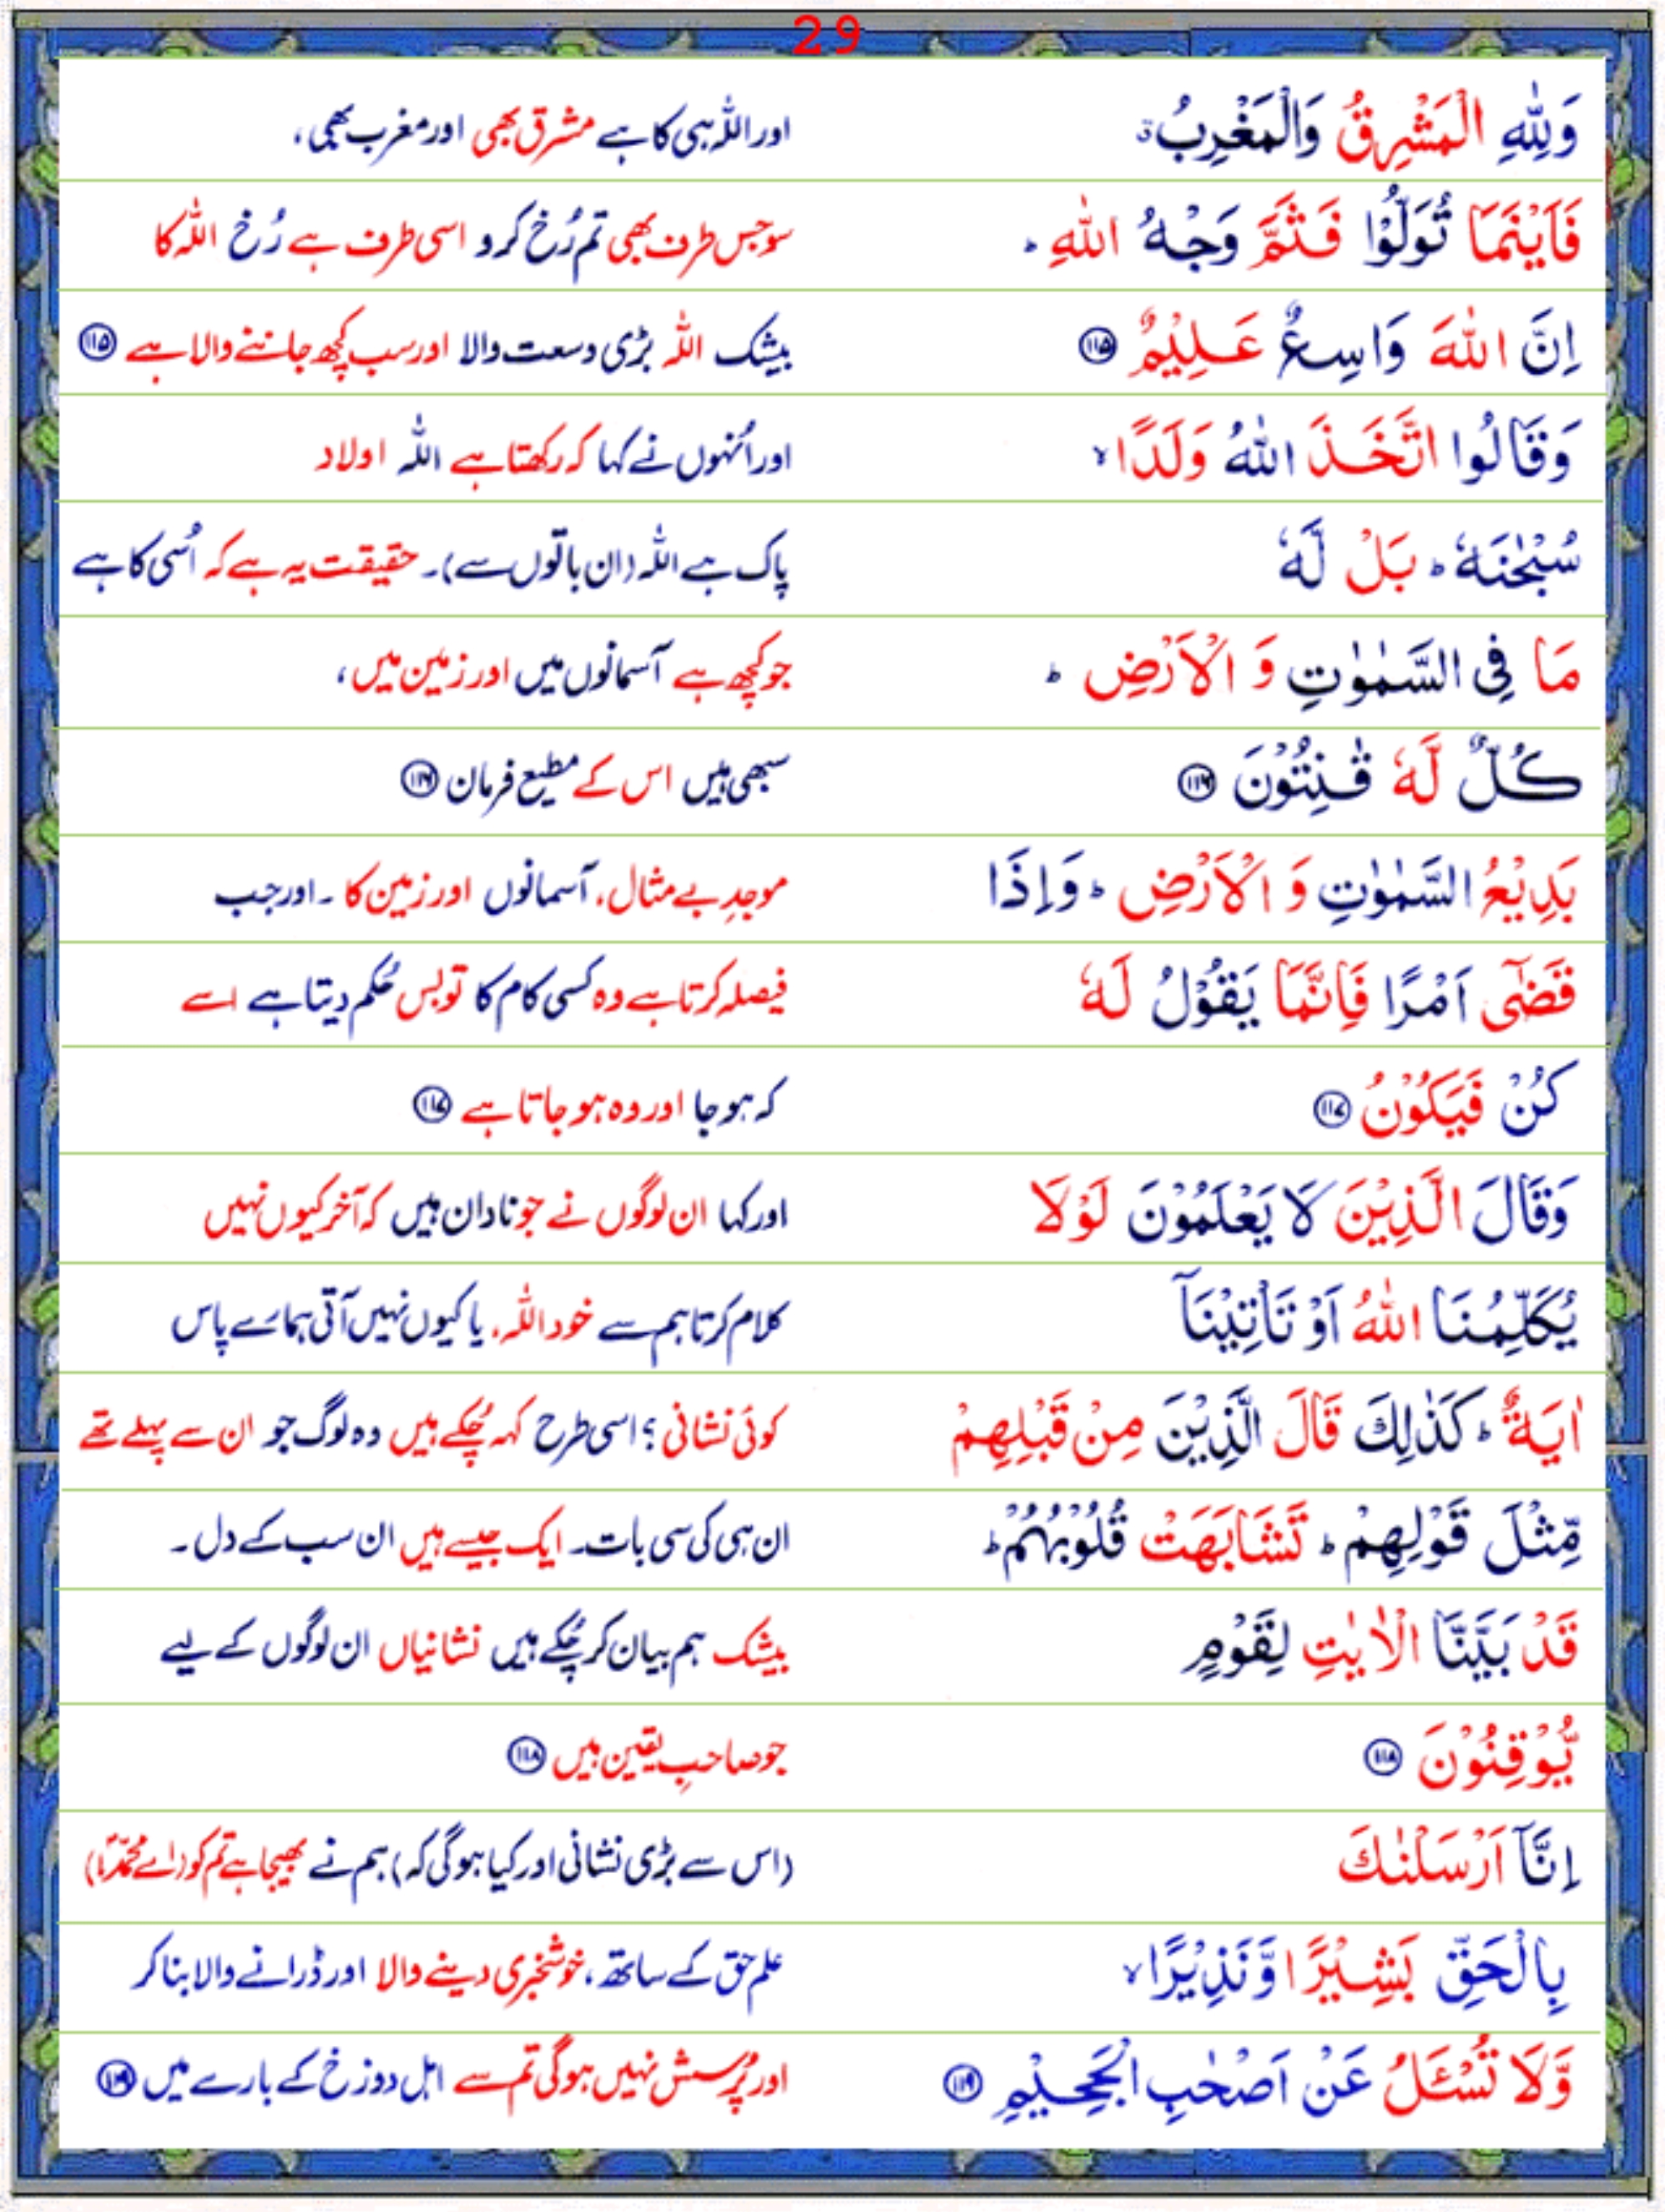 29
وَلِلّٰهِ الْمَشْرِقُ وَالْمَغْرِبُ ۗ اور اللہ ہی کا ہے مشرق بھی اور مغرب بھی،
فَاَيْنَمَا تُوَلُّوْا فَثَمَّ وَجْهُ اللّٰهِ ؕ سو جس طرف بھی تم رُخ کرو اسی طرف ہے رُخ اللہ کا
اِنَّ اللّٰهَ وَاسِعٌ عَلِيْمٌ ﴿۱۱۵﴾ بیشک اللہ بڑی وسعت والا اور سب کچھ جاننے والا ہے ﴿۱۱۵﴾
وَقَالُوا اتَّخَذَ اللّٰهُ وَلَدًا ۙ اور اُنہوں نے کہا کہ رکھتا ہے اللہ اولاد
سُبْحٰنَهٗ ؕ بَلْ لَّهٗ پاک ہے اللہ (ان باتوں سے)۔ حقیقت یہ ہے کہ اُسی کا ہے
مَا فِى السَّمٰوٰتِ وَ الْاَرْضِ ؕ جو کچھ ہے آسمانوں میں اور زمین میں،
كُلٌّ لَّهٗ قٰنِتُوْنَ ﴿۱۱۶﴾ سبھی ہیں اس کے مطیع فرمان ﴿۱۱۶﴾
بَدِيْعُ السَّمٰوٰتِ وَ الْاَرْضِ ؕ وَاِذَا موجدِ بے مثال، آسمانوں اور زمین کا ۔ اور جب
قَضٰٓى اَمْرًا فَاِنَّمَا يَقُوْلُ لَهٗ فیصلہ کرتا ہے وہ کسی کام کا تو بس حُکم دیتا ہے اسے
كُنْ فَيَكُوْنُ ﴿۱۱۷﴾ کہ ہو جا اور وہ ہو جاتا ہے ﴿۱۱۷﴾
وَقَالَ الَّذِيْنَ لَا يَعْلَمُوْنَ لَوْلَا اور کہا ان لوگوں نے جو نادان ہیں کہ آخر کیوں نہیں
يُكَلِّمُنَا اللّٰهُ اَوْ تَاْتِيْنَآ کلام کرتا ہم سے خود اللہ، یا کیوں نہیں آتی ہمارے پاس
اٰيَةٌ ؕ كَذٰلِكَ قَالَ الَّذِيْنَ مِنْ قَبْلِهِمْ کوئی نشانی ؟ اسی طرح کہہ چُکے ہیں وہ لوگ جو ان سے پہلے تھے
مِّثْلَ قَوْلِهِمْ ؕ تَشَابَهَتْ قُلُوْبُهُمْ ؕ ان ہی کی سی بات۔ ایک جیسے ہیں ان سب کے دل ۔
قَدْ بَيَّنَّا الْاٰيٰتِ لِقَوْمٍ بیشک ہم بیان کر چُکے ہیں نشانیاں ان لوگوں کے لیے
يُّوْقِنُوْنَ ﴿۱۱۸﴾ جو صاحبِ یقین ہیں ﴿۱۱۸﴾
اِنَّآ اَرْسَلْنٰكَ (اس سے بڑی نشانی اور کیا ہو گی کہ) ہم نے بھیجا ہے تم کو (اے محمّدؐ)
بِالْحَقِّ بَشِيْرًا وَّنَذِيْرًا ۙ علم حق کے ساتھ ، خوشخبری دینے والا اور ڈرانے والا بنا کر
وَّلَا تُسْـَٔلُ عَنْ اَصْحٰبِ الْجَحِيْمِ ﴿۱۱۹﴾ اور پُرسش نہیں ہو گی تم سے اہل دوزخ کے بارے میں ﴿۱۱۹﴾